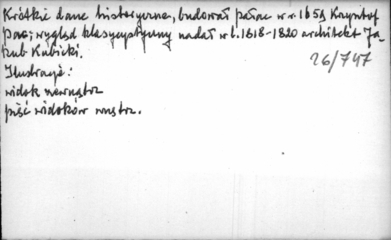 Krótkie dane historyczne, budował pałac w r. 1651 Krzysztof
Pac; wygląd klasycystyczny nadał w l. 1818-1820 architekt Ja-
kub Kubicki.
26/747
Ilustracje:
widok zewnątrz
pięć widoków wnętrz.